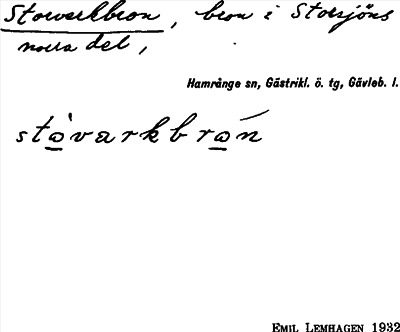 Storvarkbron, bron i Storsjöns
norra del,
Hamrånge sn, Gästrikl. ö. tg, Gävleb. l.
stò̱varkbro̱ń
EMIL LEMHAGEN 1932